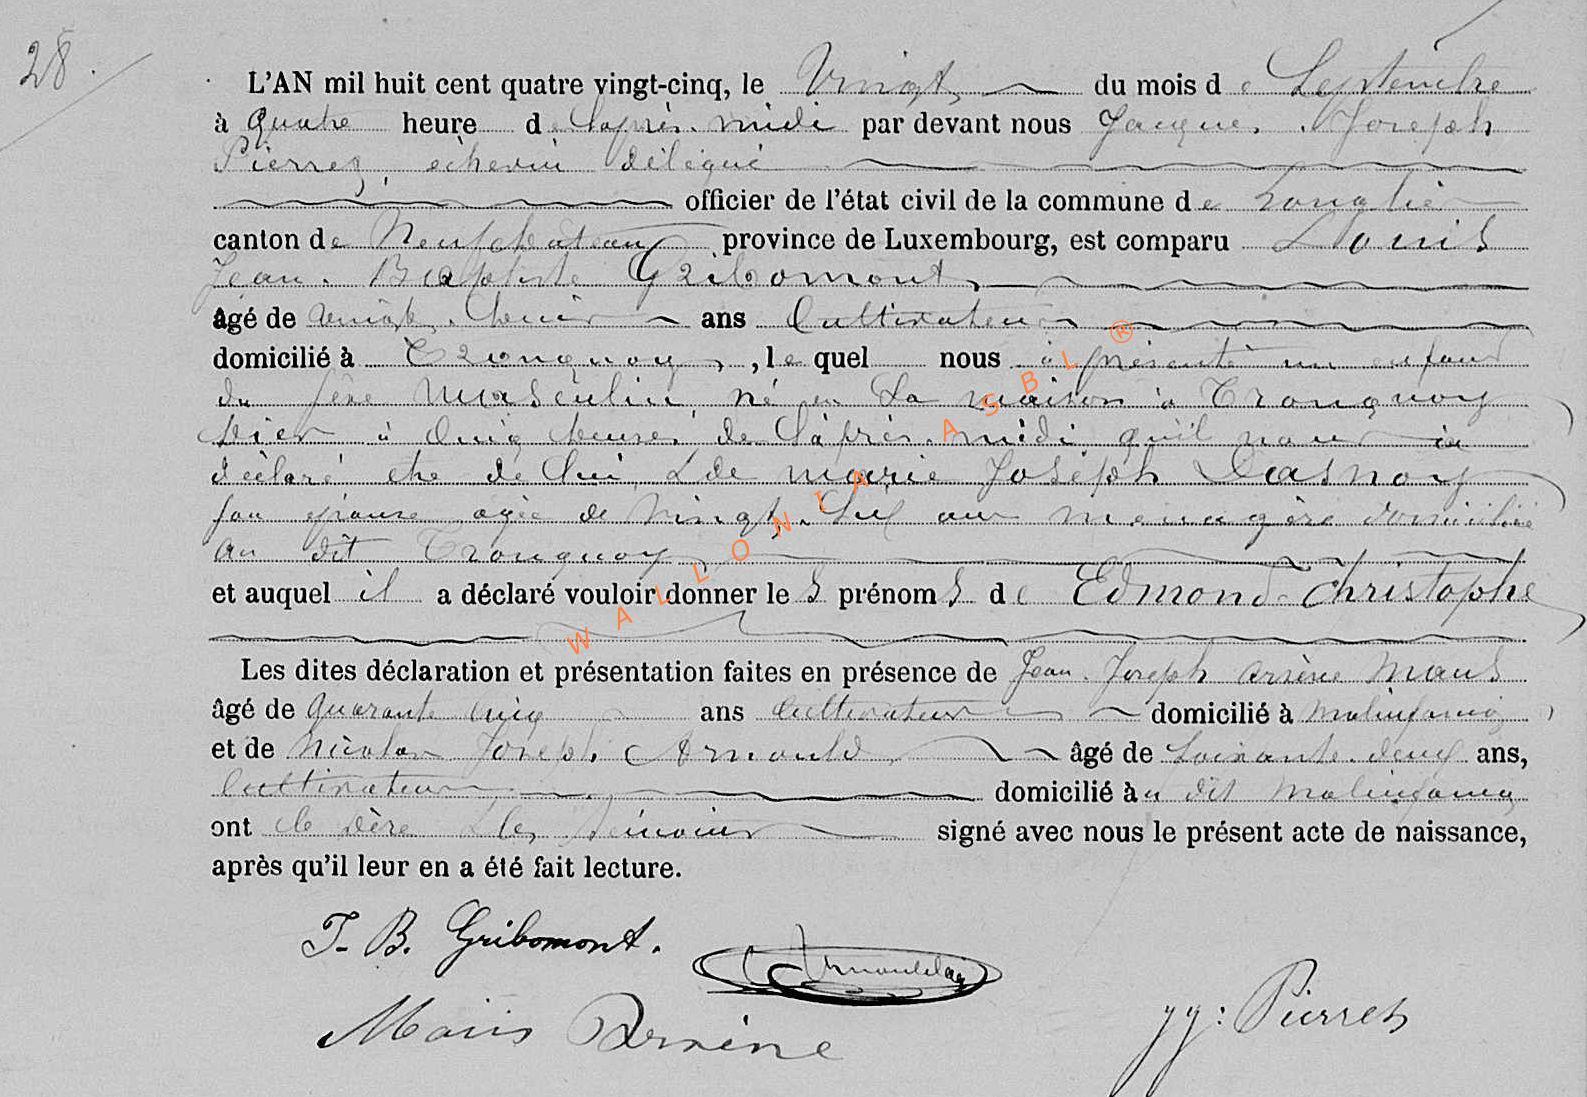 28.
L'AN mil huit cent quatre vingt-cinq, le Vingt du mois de Septembre
à quatre heure de l'après-midi par devant nous Jacques Joseph
Pierret, échevin délégué
officier de l'état civil de la commune de Longlier
canton de Neufchateau province de Luxembourg, est comparu Louis
Jean-Baptiste Gribomont,
âgé de vingt- ans Cultivateur
domicilié à Tronquoy, lequel nous à présenté un enfant
du sexe masculin, né en sa maison à Tronquoy
hier à cinq heures de l'après-midi qu'il nous a
déclaré etre de lui, & de marie Joseph Dasnoy
son epouse agée de vingt- ans menagère domiciliée
au dit Tronquoy
et auquel il a déclaré vouloir donner le S prénomS de Edmond-Christophe
Les dites déclaration et présentation faites en présence de Jean-Joseph arsène Maus
âgé de quarante cinq ans Cultivateur domicilié à
et de Nicolas Joseph Arnould âgé de soixante-deux ans,
Cultivateur domicilié au dit
ont le père & les témoins signé avec nous le présent acte de naissance,
après qu'il leur en a été fait lecture.
J-B. Gribomont.
Maus Arsène
jj: Pierret
WALLONIA ASBL ®